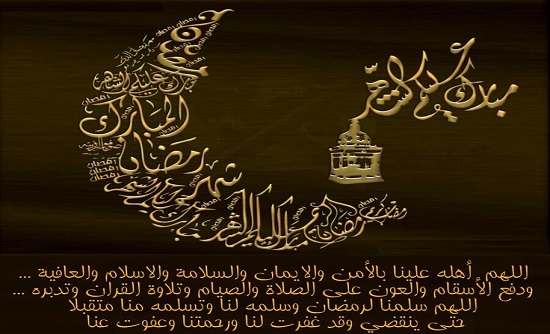 مبارك عليكم الشهر
عليكم الشهر
المبارك
رمضان
شهر
رمضان كريم
اللهم أهله علينا بالأمن والايمان والسلامة والاسلام والعافية ...
ودفع الأسقام والعون على الصلاة والصيام وتلاوة القران وتدبره ...
اللهم سلمنا لرمضان وسلمه لنا وتسلمه منا متقبلا
حتى ينقضي وقد غفرت لنا ورحمتنا وعفوت عنا